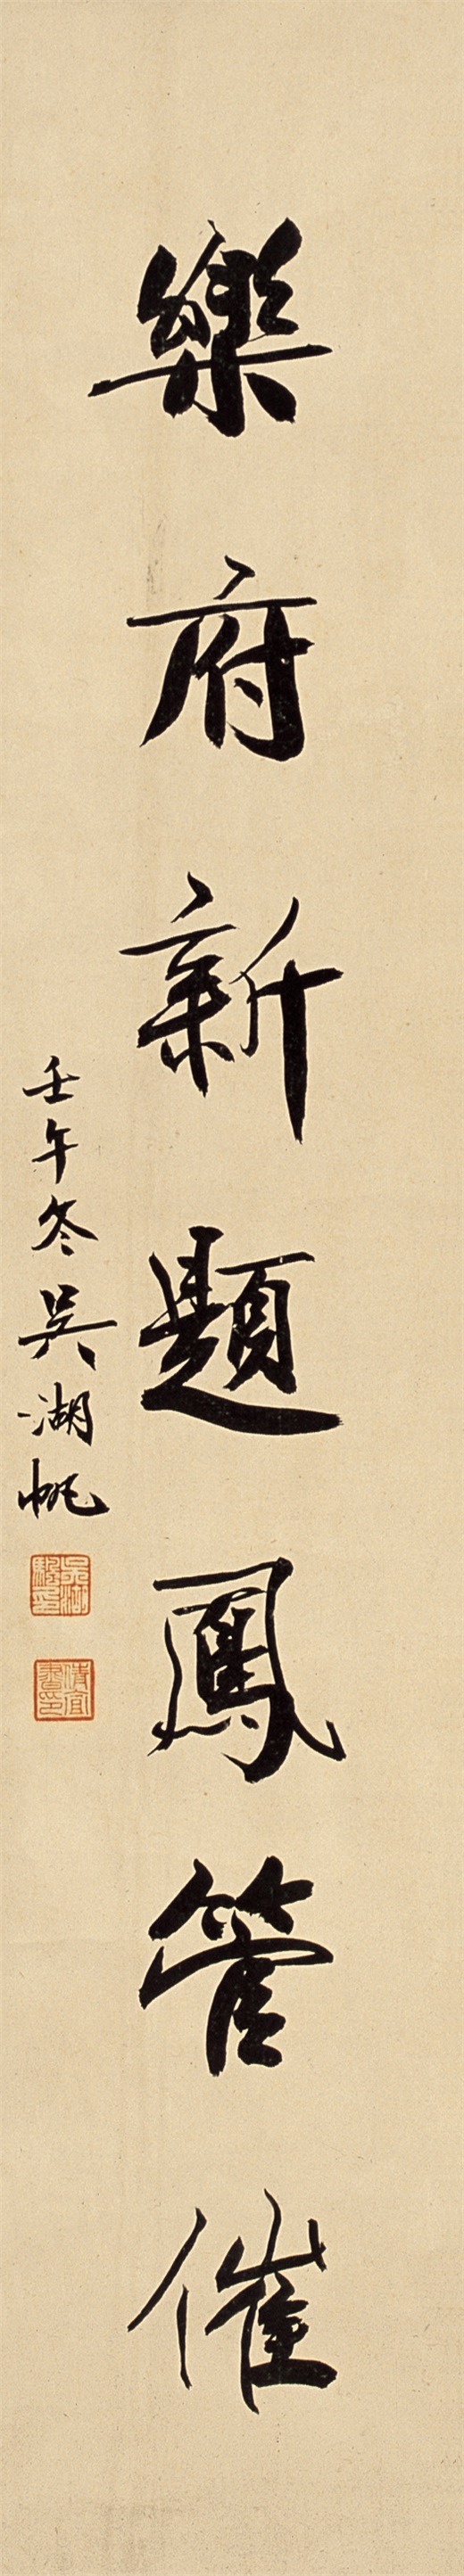 樂府新題鳳管催
壬午冬吳湖帆
吳湖驗印
倩宜書印